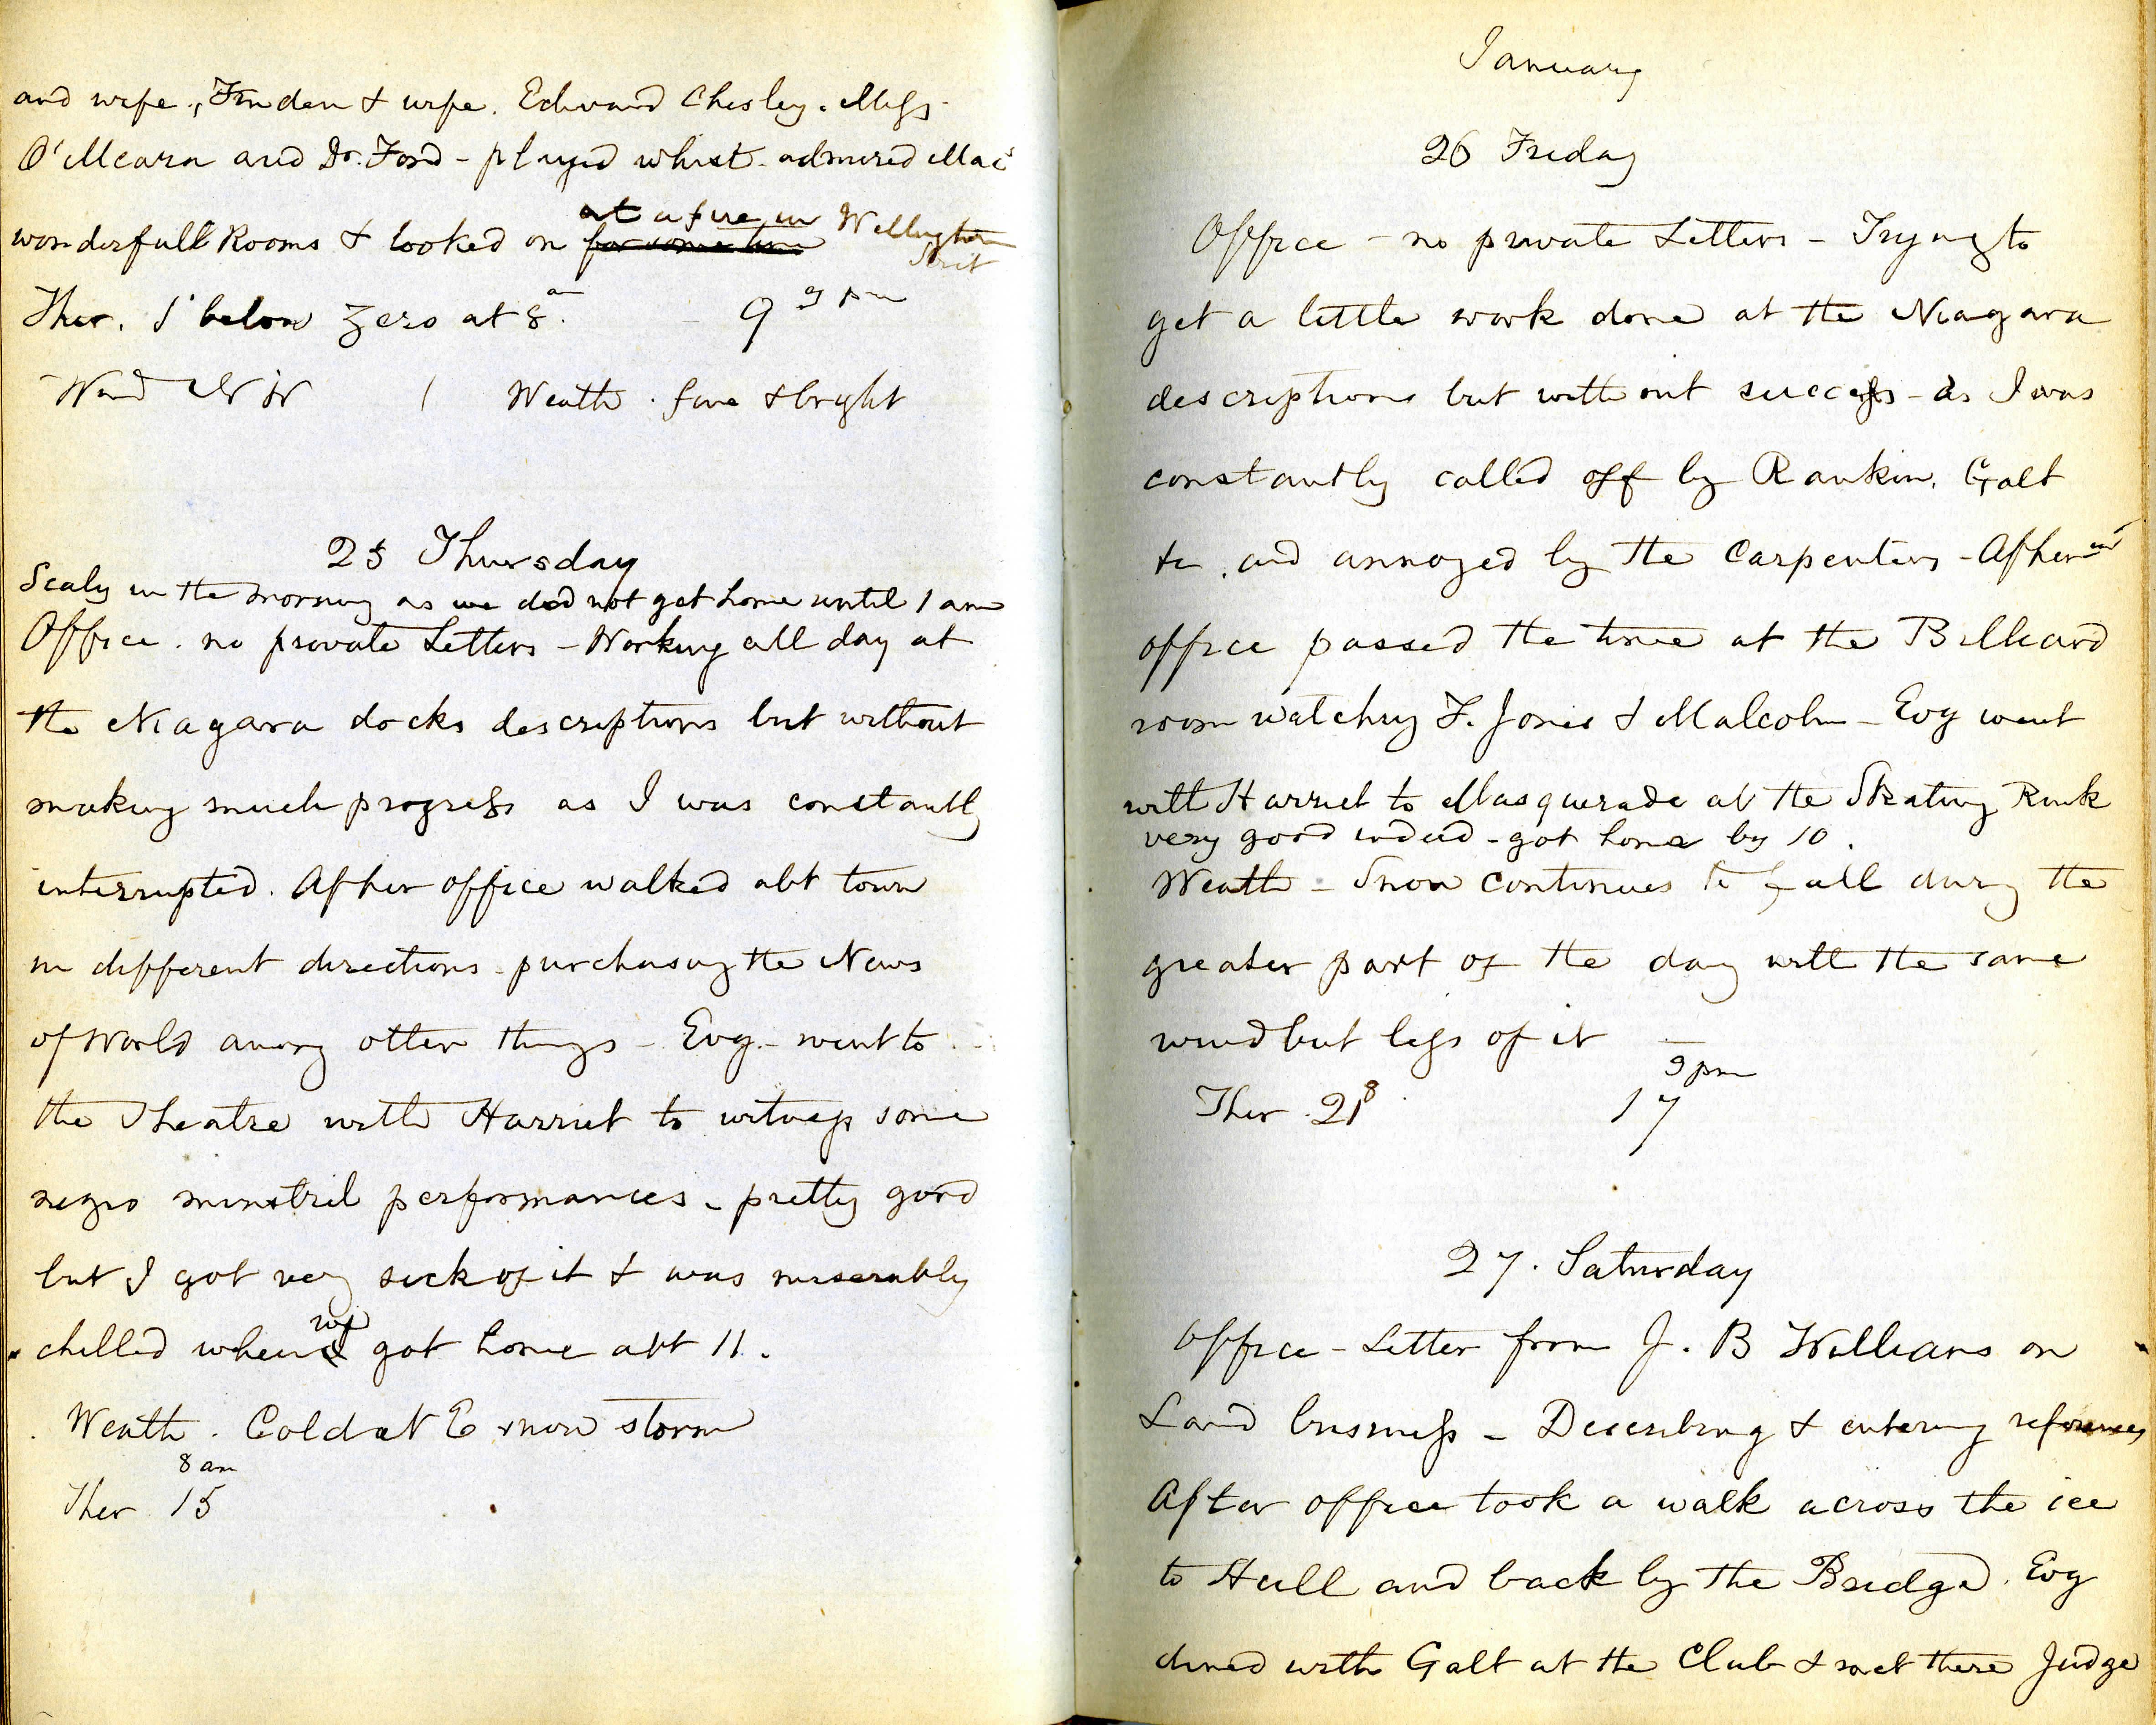 and wife, Finden & wife. Edward Chesley. Miss
O'Meara and Dr. Ford - played whist - admired Mac's
wonderfull Rooms & looked on at a fire in Wellington Street
Ther. 5 below zero at 8 am 9 9 pm
Wind NW Weath. fine & bright
25 Thursday
Sealy in the morning as we did not get home until 1 am
Office. no private Letters - Working all day at
the Niagara docks descriptions but without
making much progress as I was constantly
interrupted. After office walked abt town
in different directions - purchasing the News
of World among other things - Evg. - went to
the Theatre with Harriet to witness some
negro minstril performances - pretty good
but I got very sick of it & was miserably
chilled when we got home abt 11.
Weath. Cold at N E snow storm
8 am
Ther 15
January
26 Friday
Office - no private Letters - Trying to
get a little work done at the Niagara
descriptions but without success - as I was
constantly called off by Rankin, Galt
&c. and annoyed by the Carpenters - After
office passed the time at the Billiard
room watching F. Jones & Malcolm - Evg went
with Harriet to Masquerade at the Skating Rink
very good indeed - got home by 10.
Weath - Snow continues to fall during the
greater part of the day with the same
wind but less of it
9 pm
Ther 21 8 17
27. Saturday
Office - Letter from J. B Williams on
Land business - Describing & entering references
After office took a walk across the ice
to Hull and back by the Bridge. Evg
dined with Galt at the Club & met there Judge